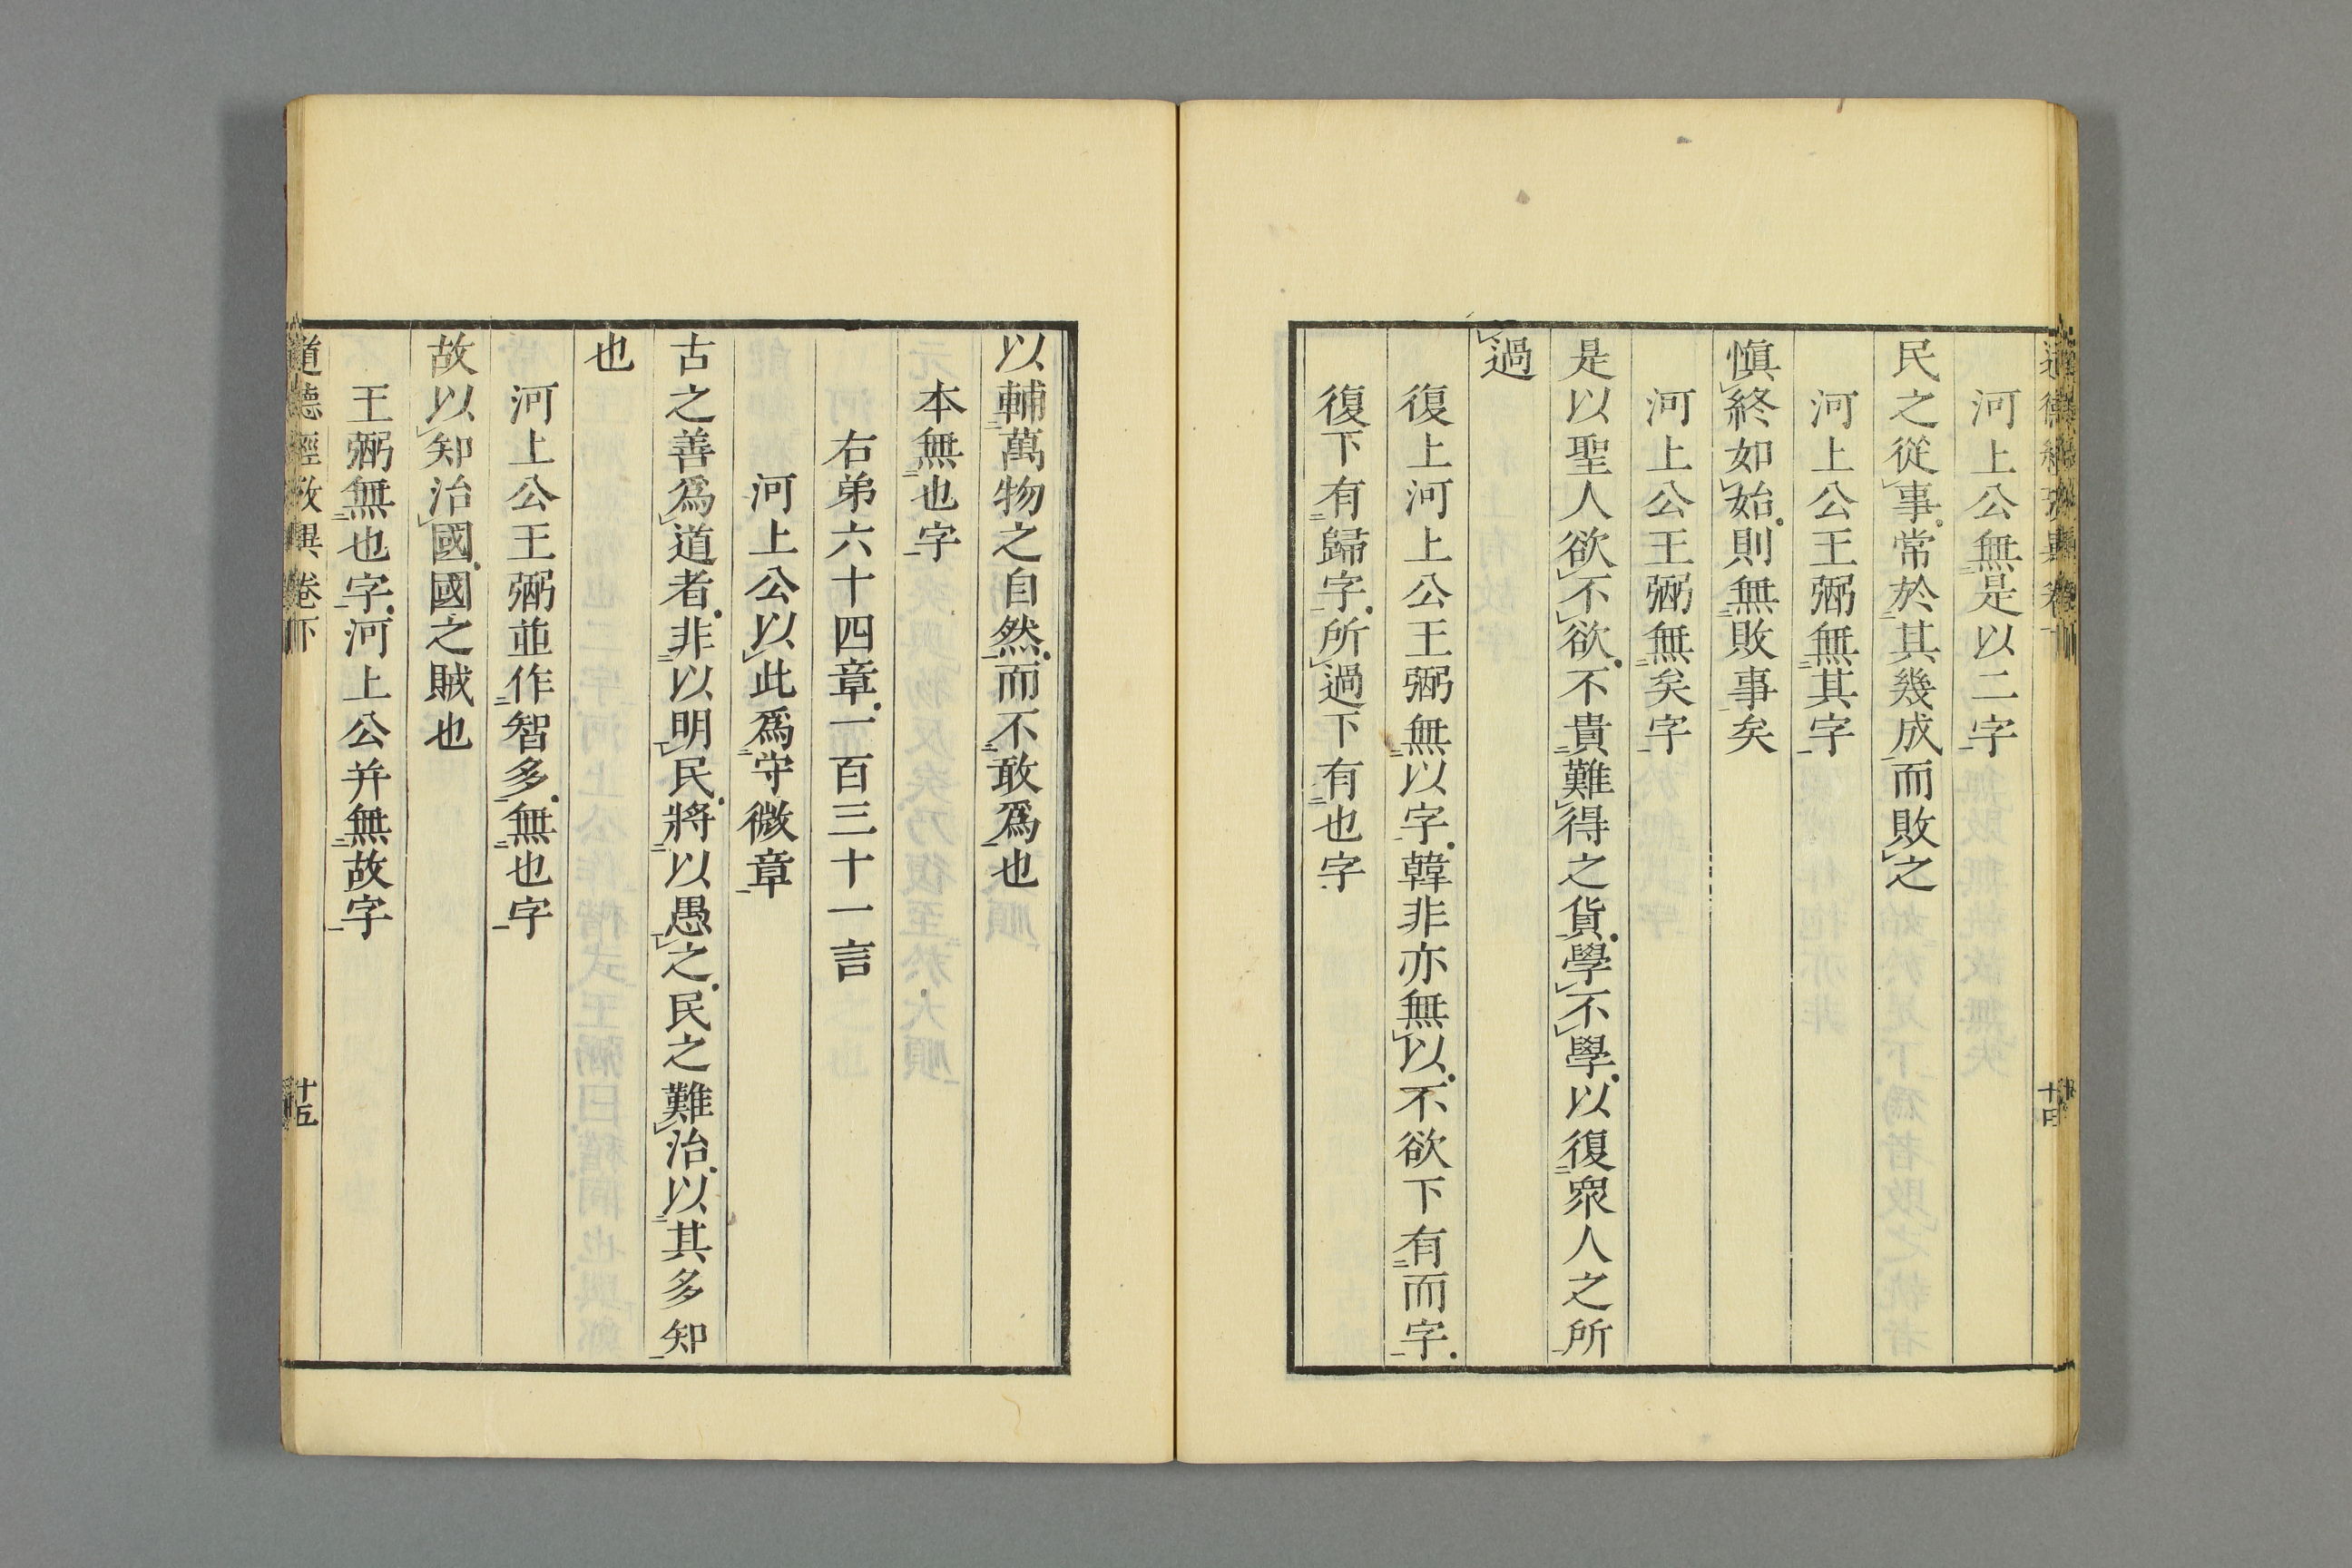 河上公無是以二字
民之從事常於其幾成而敗之
河上公王弼無其字
慎終如始則無敗事矣
河上公王弼無矣字
是以聖人欲不欲不貴難得之貨學不學以復衆人之所
過
復上河上公王弼無以字韓非亦無以不欲下有而字
復下有歸字所過下有也字
以輔萬物之自然而不敢爲也
本無也字
右弟六十四章一百三十一言
河上公以此爲守微章
古之善爲道者非以明民將以愚之民之難治以其多知
也
河上公王弼並作智多無也字
故以知治國國之賊也
王弼無也字河上公并無故字
道德經攷異卷下
十五